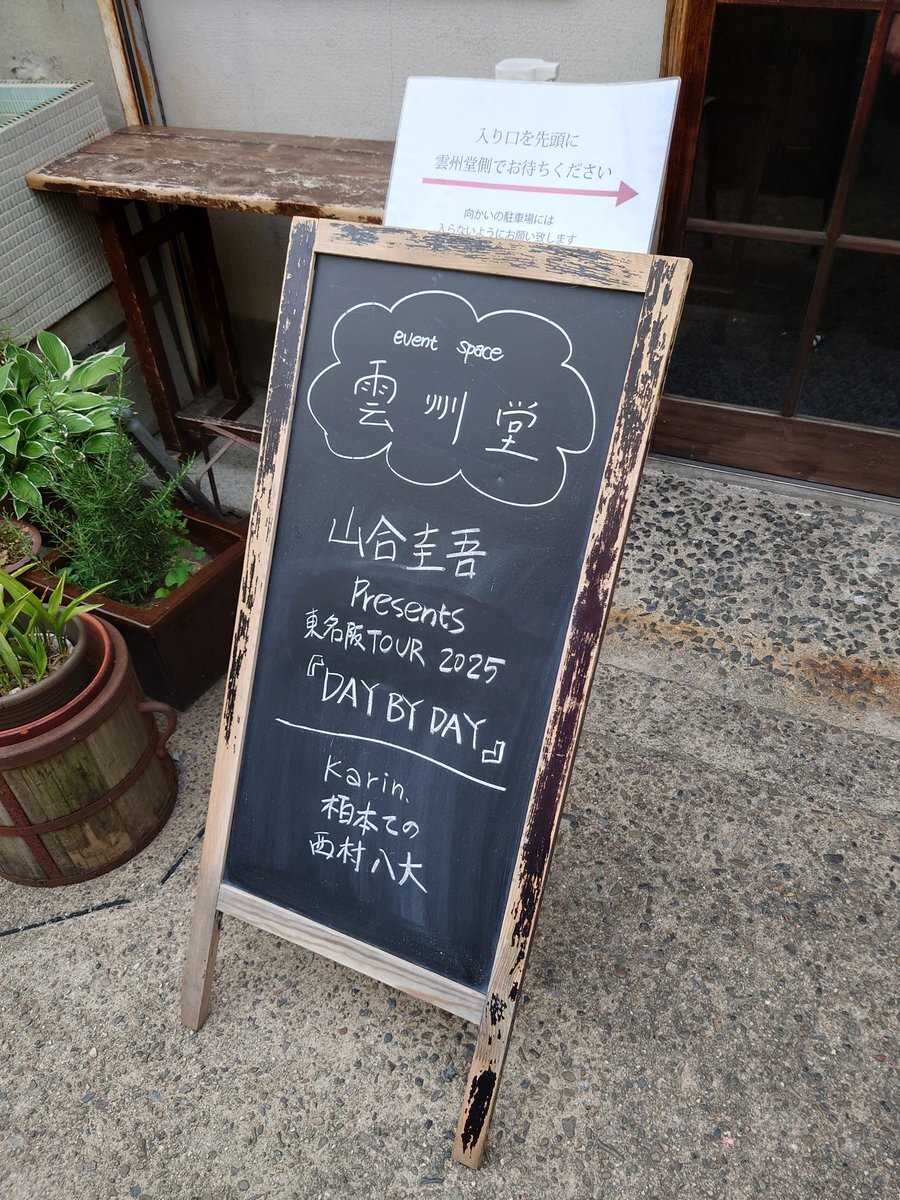 入り口を先頭に
雲州堂側でお待ちください
向かいの駐車場には
入らないようにお願い致します
event space
雲州堂
山合圭吾
Presents
東名阪TOUR 2025
『DAY BY DAY』
Karin.
柏本ての
西村八大